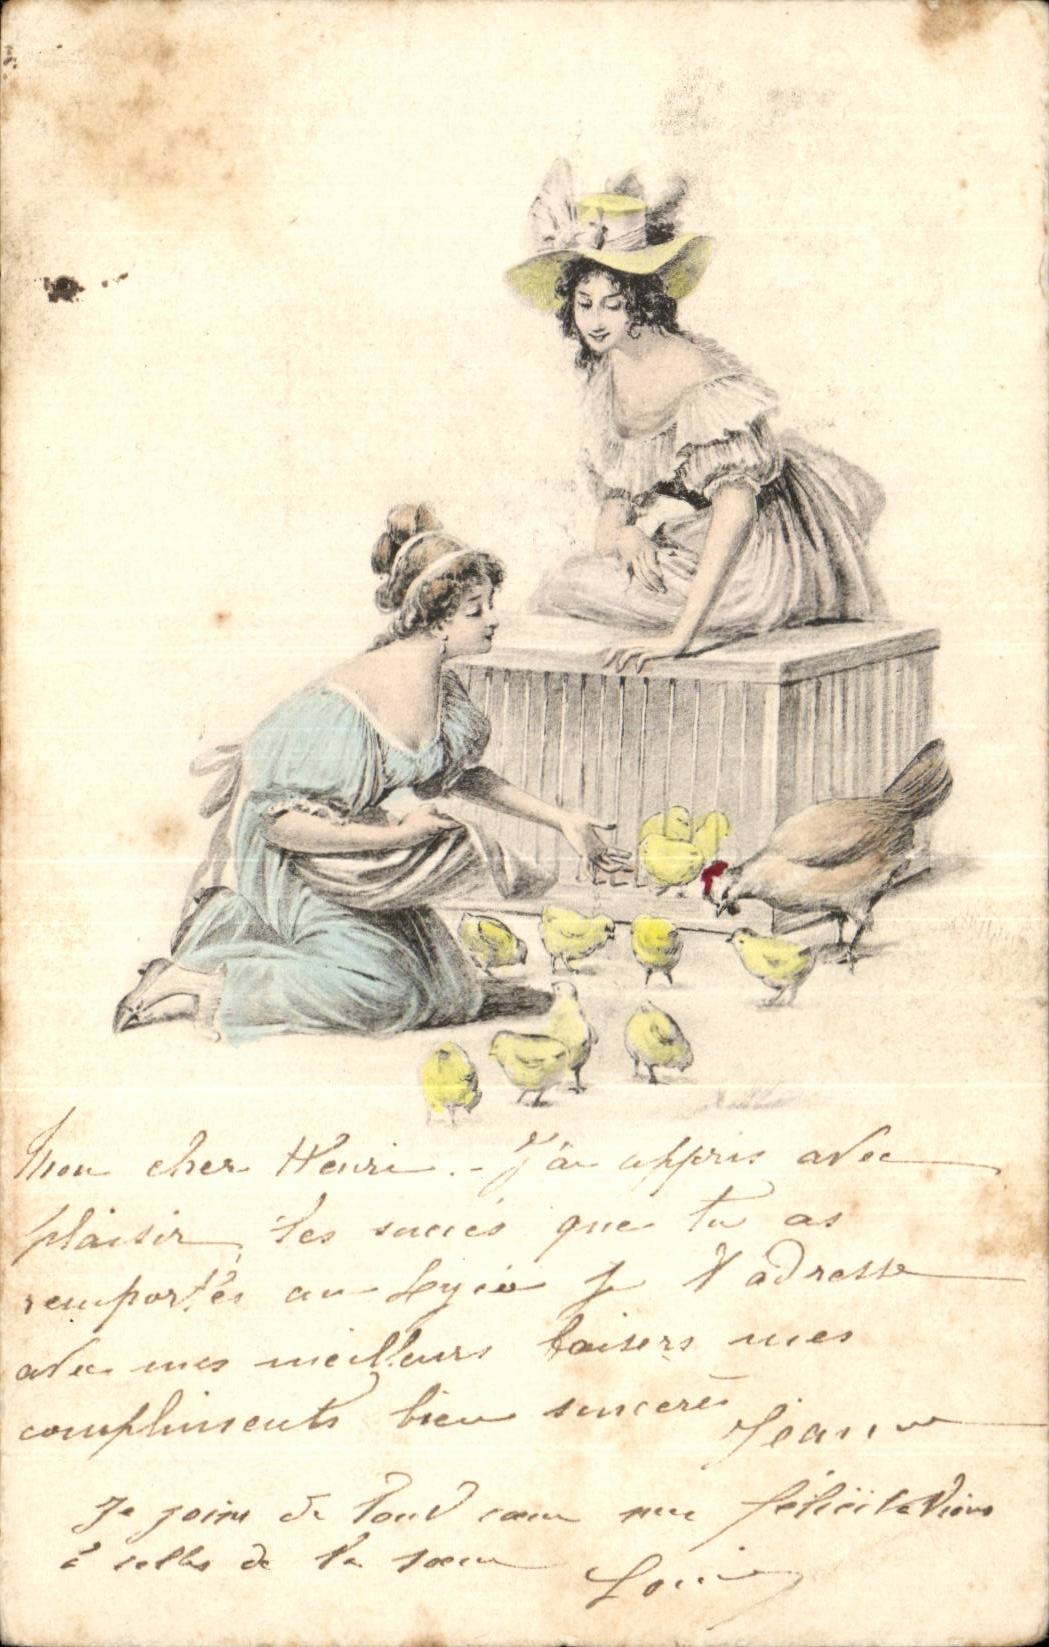 Mon cher Henri. - J'ai appris avec
plaisir, les succés que tu as
remportés au Lycée je t'adresse
avec mes meilleurs baisers mes
compliments bien sincerès
Jeanne
Je joins de tout cœur mes félicitations
à celles de ta sœur